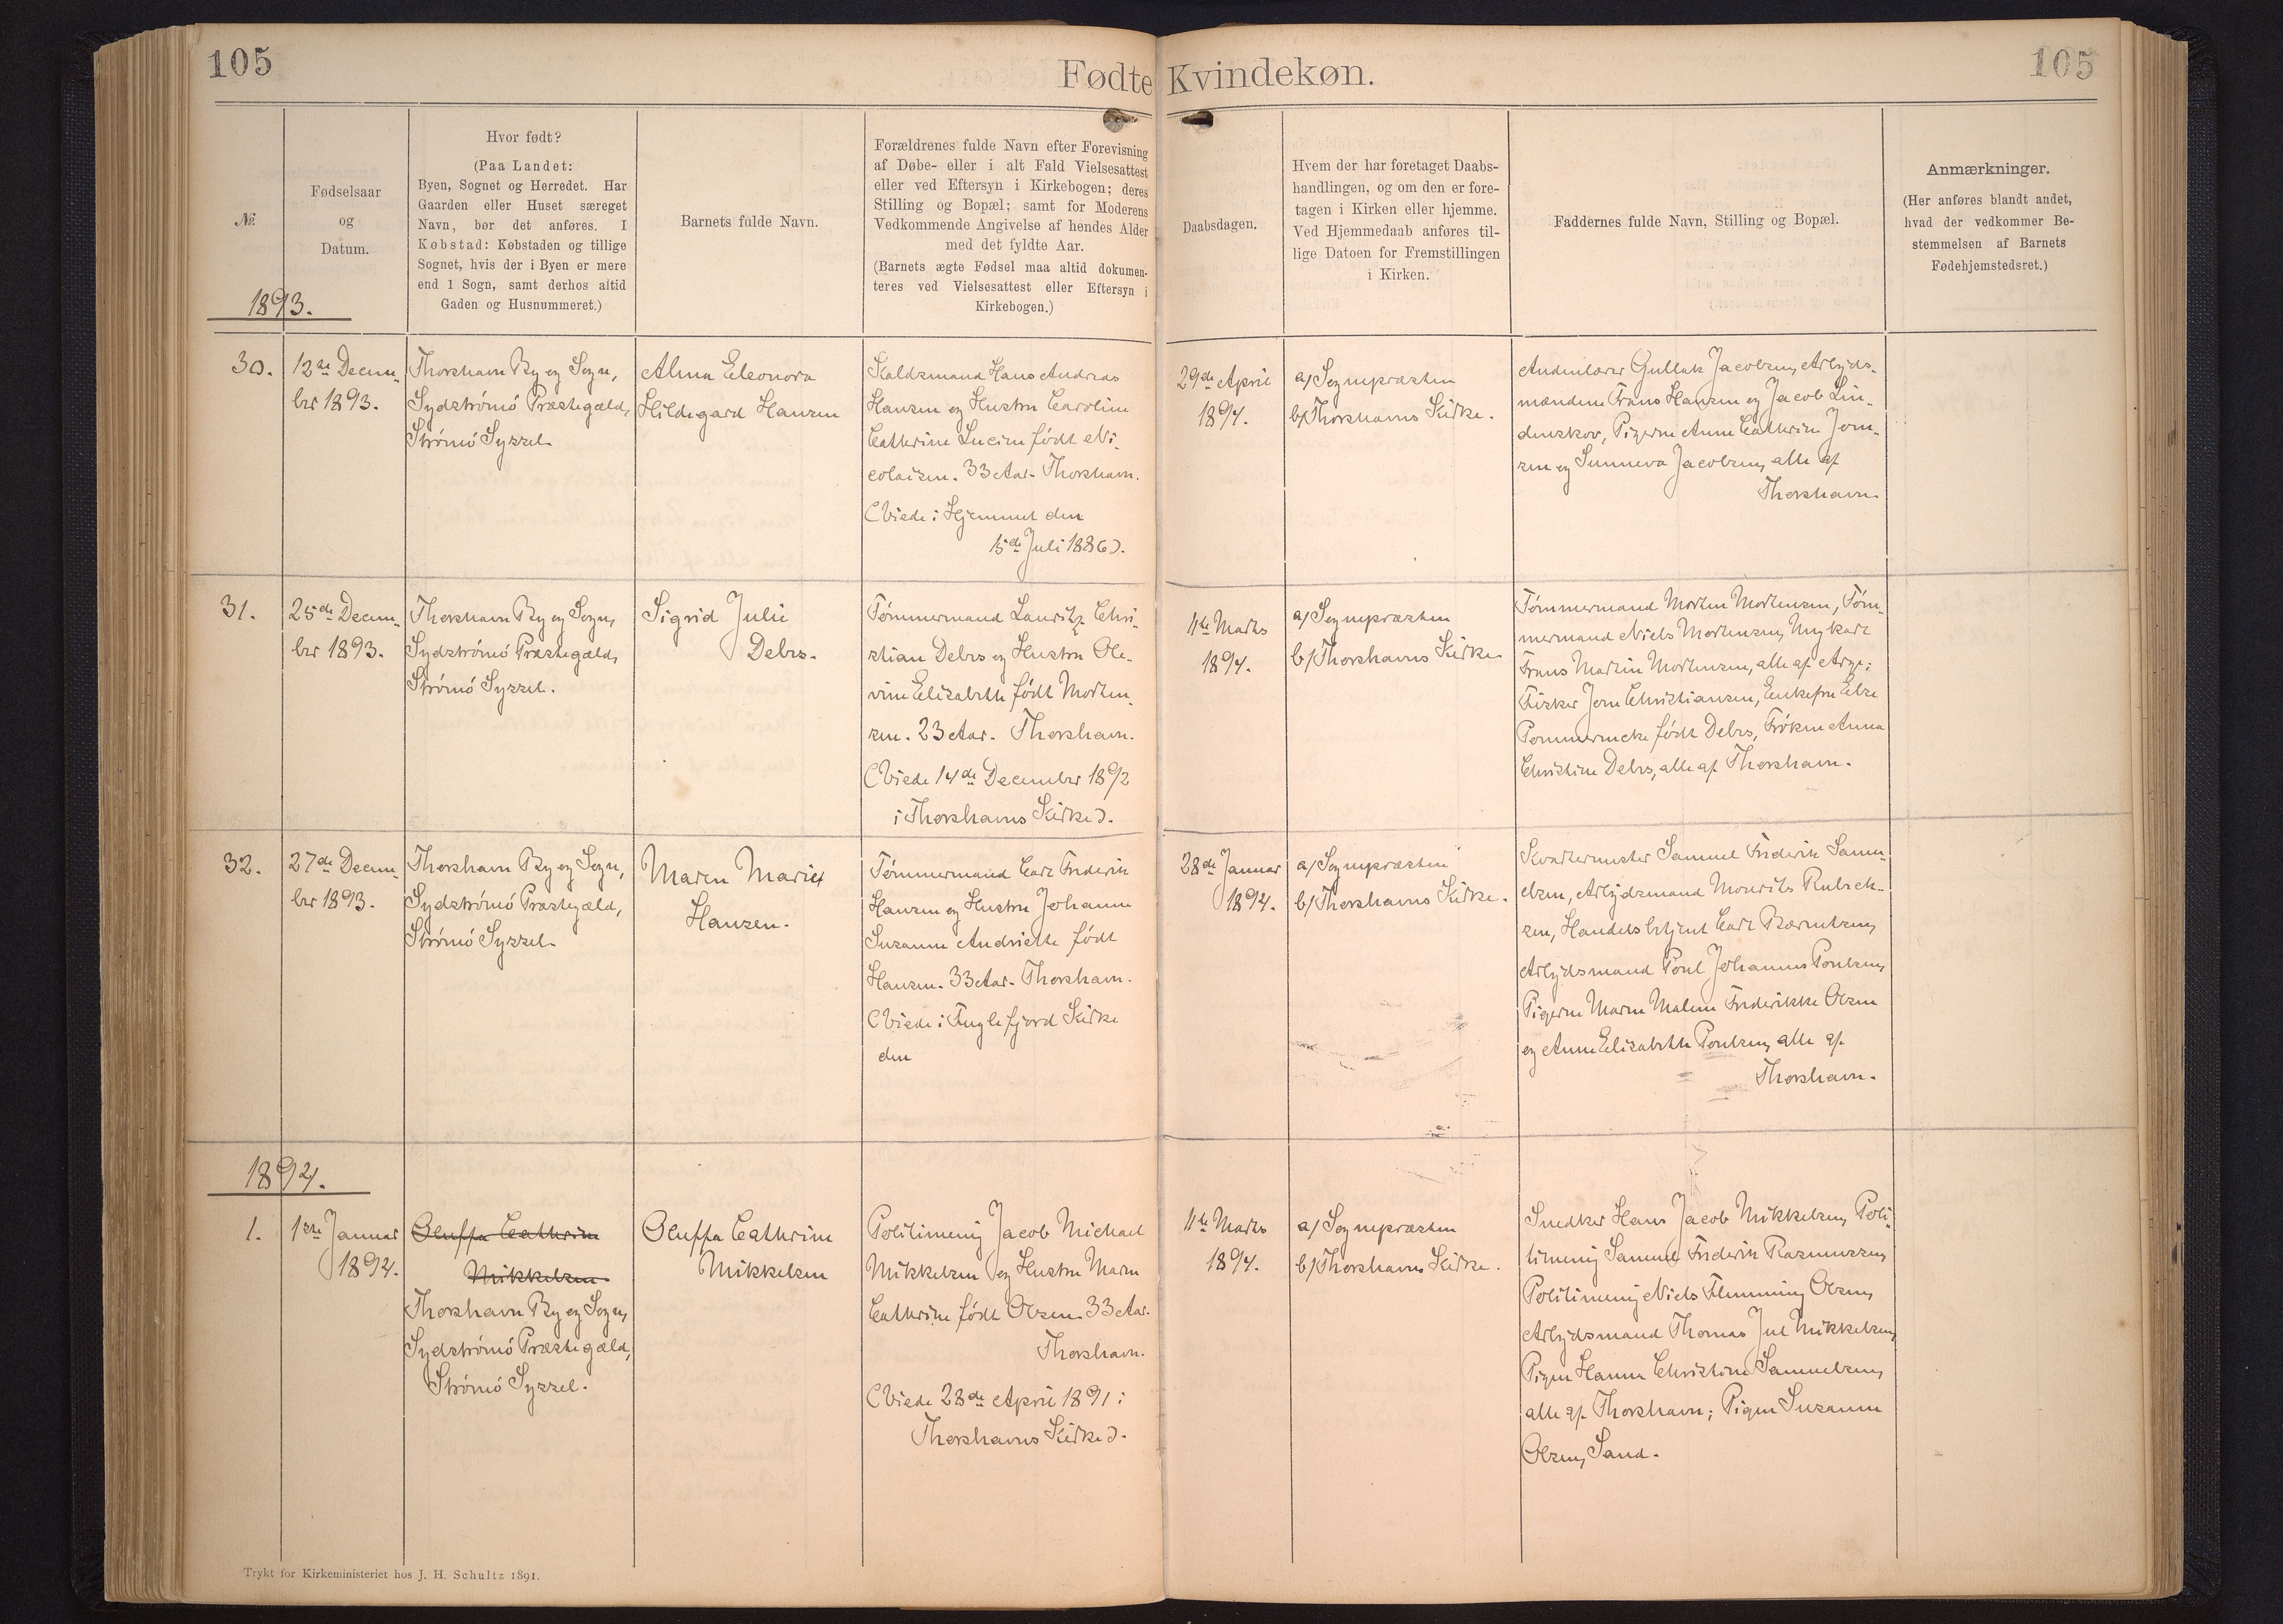 105
Fødte Kvindekøn.
105
№
Fødselsaar
og
Datum.
Hvor født?
(Paa Landet:
Byen, Sognet og Herredet. Har
Gaarden eller Huset særeget
Navn, bør det anføres. I
Købstad: Købstaden og tillige
Sognet, hvis der i Byen er mere
end 1 Sogn, samt derhos altid
Gaden og Husnummeret.)
Barnets fulde Navn.
Forældrenes fulde Navn efter Forevisning
af Døbe- eller i alt Fald Vielsesattest
eller ved Eftersyn i Kirkebogen; deres
Stilling og Bopæl; samt for Moderens
Vedkommende Angivelse af hendes Alder
med det fyldte Aar.
(Barnets ægte Fødsel maa altid dokumen-
teres ved Vielsesattest eller Eftersyn i
Kirkebogen.)
Daabsdagen.
Hvem der har foretaget Daabs-
handlingen, og om den er fore-
tagen i Kirken eller hjemme.
Ved Hjemmedaab anføres til-
lige Datoen for Fremstillingen
i Kirken.
Faddernes fulde Navn, Stilling og Bopæl.
Anmærkninger.
(Her anføres blandt andet,
hvad der vedkommer Be-
stemmelsen af Barnets
Fødehjemstedsret.)
1893.
30.
12te Decem-
ber 1893.
Thorshavn By og Sogn,
Sydstrømø Præstegæld,
Strømø Syssel.
Alma Eleonora
Hildegard Hansen
Hans Andreas
Hansen og Hustru Caroline
Cathrine Lucine født Ni-
colaisen. 33 Aar. Thorshavn.
(Viede i Hjemmet den
15de Juli 1886).
29de April
1894.
a/ Sognepræsten
b/ Thorshavns Kirke.
Andenlærer Gullak Jacobsen, Arbejds-
mændene Frans Hansen og Jacob Lin-
denskov, Pigerne Anne Cathrine Joen-
sen og Sunneva Jacobsen, alle af
Thorshavn.
31.
25de Decem-
ber 1893.
Thorshavn By og Sogn,
Sydstrømø Præstegæld,
Strømø Syssel.
Sigrid Julie
Debes.
Tømmermand Lauritz Chri-
stian Debes og Hustru Ole-
vine Elisabeth født Morten-
sen. 23 Aar. Thorshavn.
(Viede 14de December 1892
i Thorshavns Kirke).
11te Marts
1894.
a/ Sognepræsten
b/ Thorshavns Kirke
Tømmermand Morten Mortensen, Tøm-
mermand Niels Mortensen, Ungkarl
Frans Martin Mortensen, alle af Arge;
Fisker Joen Christiansen, Enkefru Else
Pommerencke født Debes, Frøken Anna
Christine Debes, alle af Thorshavn.
32.
27de Decem-
ber 1893.
Thorshavn By og Sogn,
Sydstrømø Præstegæld,
Strømø Syssel.
Maren Marie
Hansen.
Tømmermand Carl Frederik
Hansen og Hustru Johanne
Susanne Andriette født
Hansen. 33 Aar. Thorshavn.
(Viede i Fuglefjord Kirke
den
28de Januar
1894.
a/ Sognepræsten
b/ Thorshavns Kirke.
Kvartermester Samuel Frederik Samu-
elsen, Arbejdsmand Mourits Rubek-
sen, Handelsbetjent Carl Bærentsen,
Arbejdsmand Poul Johannes Poulsen,
Pigerne Maren Malene Frederikke Olsen
og Anne Elisabeth Poulsen, alle af
Thorshavn.
1894.
1.
1ste Januar
1894.
Oluffa Cathrine
Mikkelsen.
Thorshavn By og Sogn,
Sydstrømø Præstegæld,
Strømø Syssel.
Oluffa Cathrine
Mikkelsen
Politimenig Jacob Michael
Mikkelsen og Hustru Maren
Cathrine født Olsen. 33 Aar.
Thorshavn.
(Viede 28de April 1891 i
Thorshavns Kirke).
11te Marts
1894.
a/ Sognepræsten
b/ Thorshavns Kirke.
Snedker Hans Jacob Mikkelsen, Poli-
timenig Samuel Frederik Rasmussen,
Politimenig Niels Flemming Olsen,
Arbejdsmand Thomas Jul Mikkelsen,
Pigen Hanne Christine Samuelsen,
alle af Thorshavn; Pigen Susanne
Olsen, Sand.
Trykt for Kirkeministeriet hos J. H. Schultz 1891.